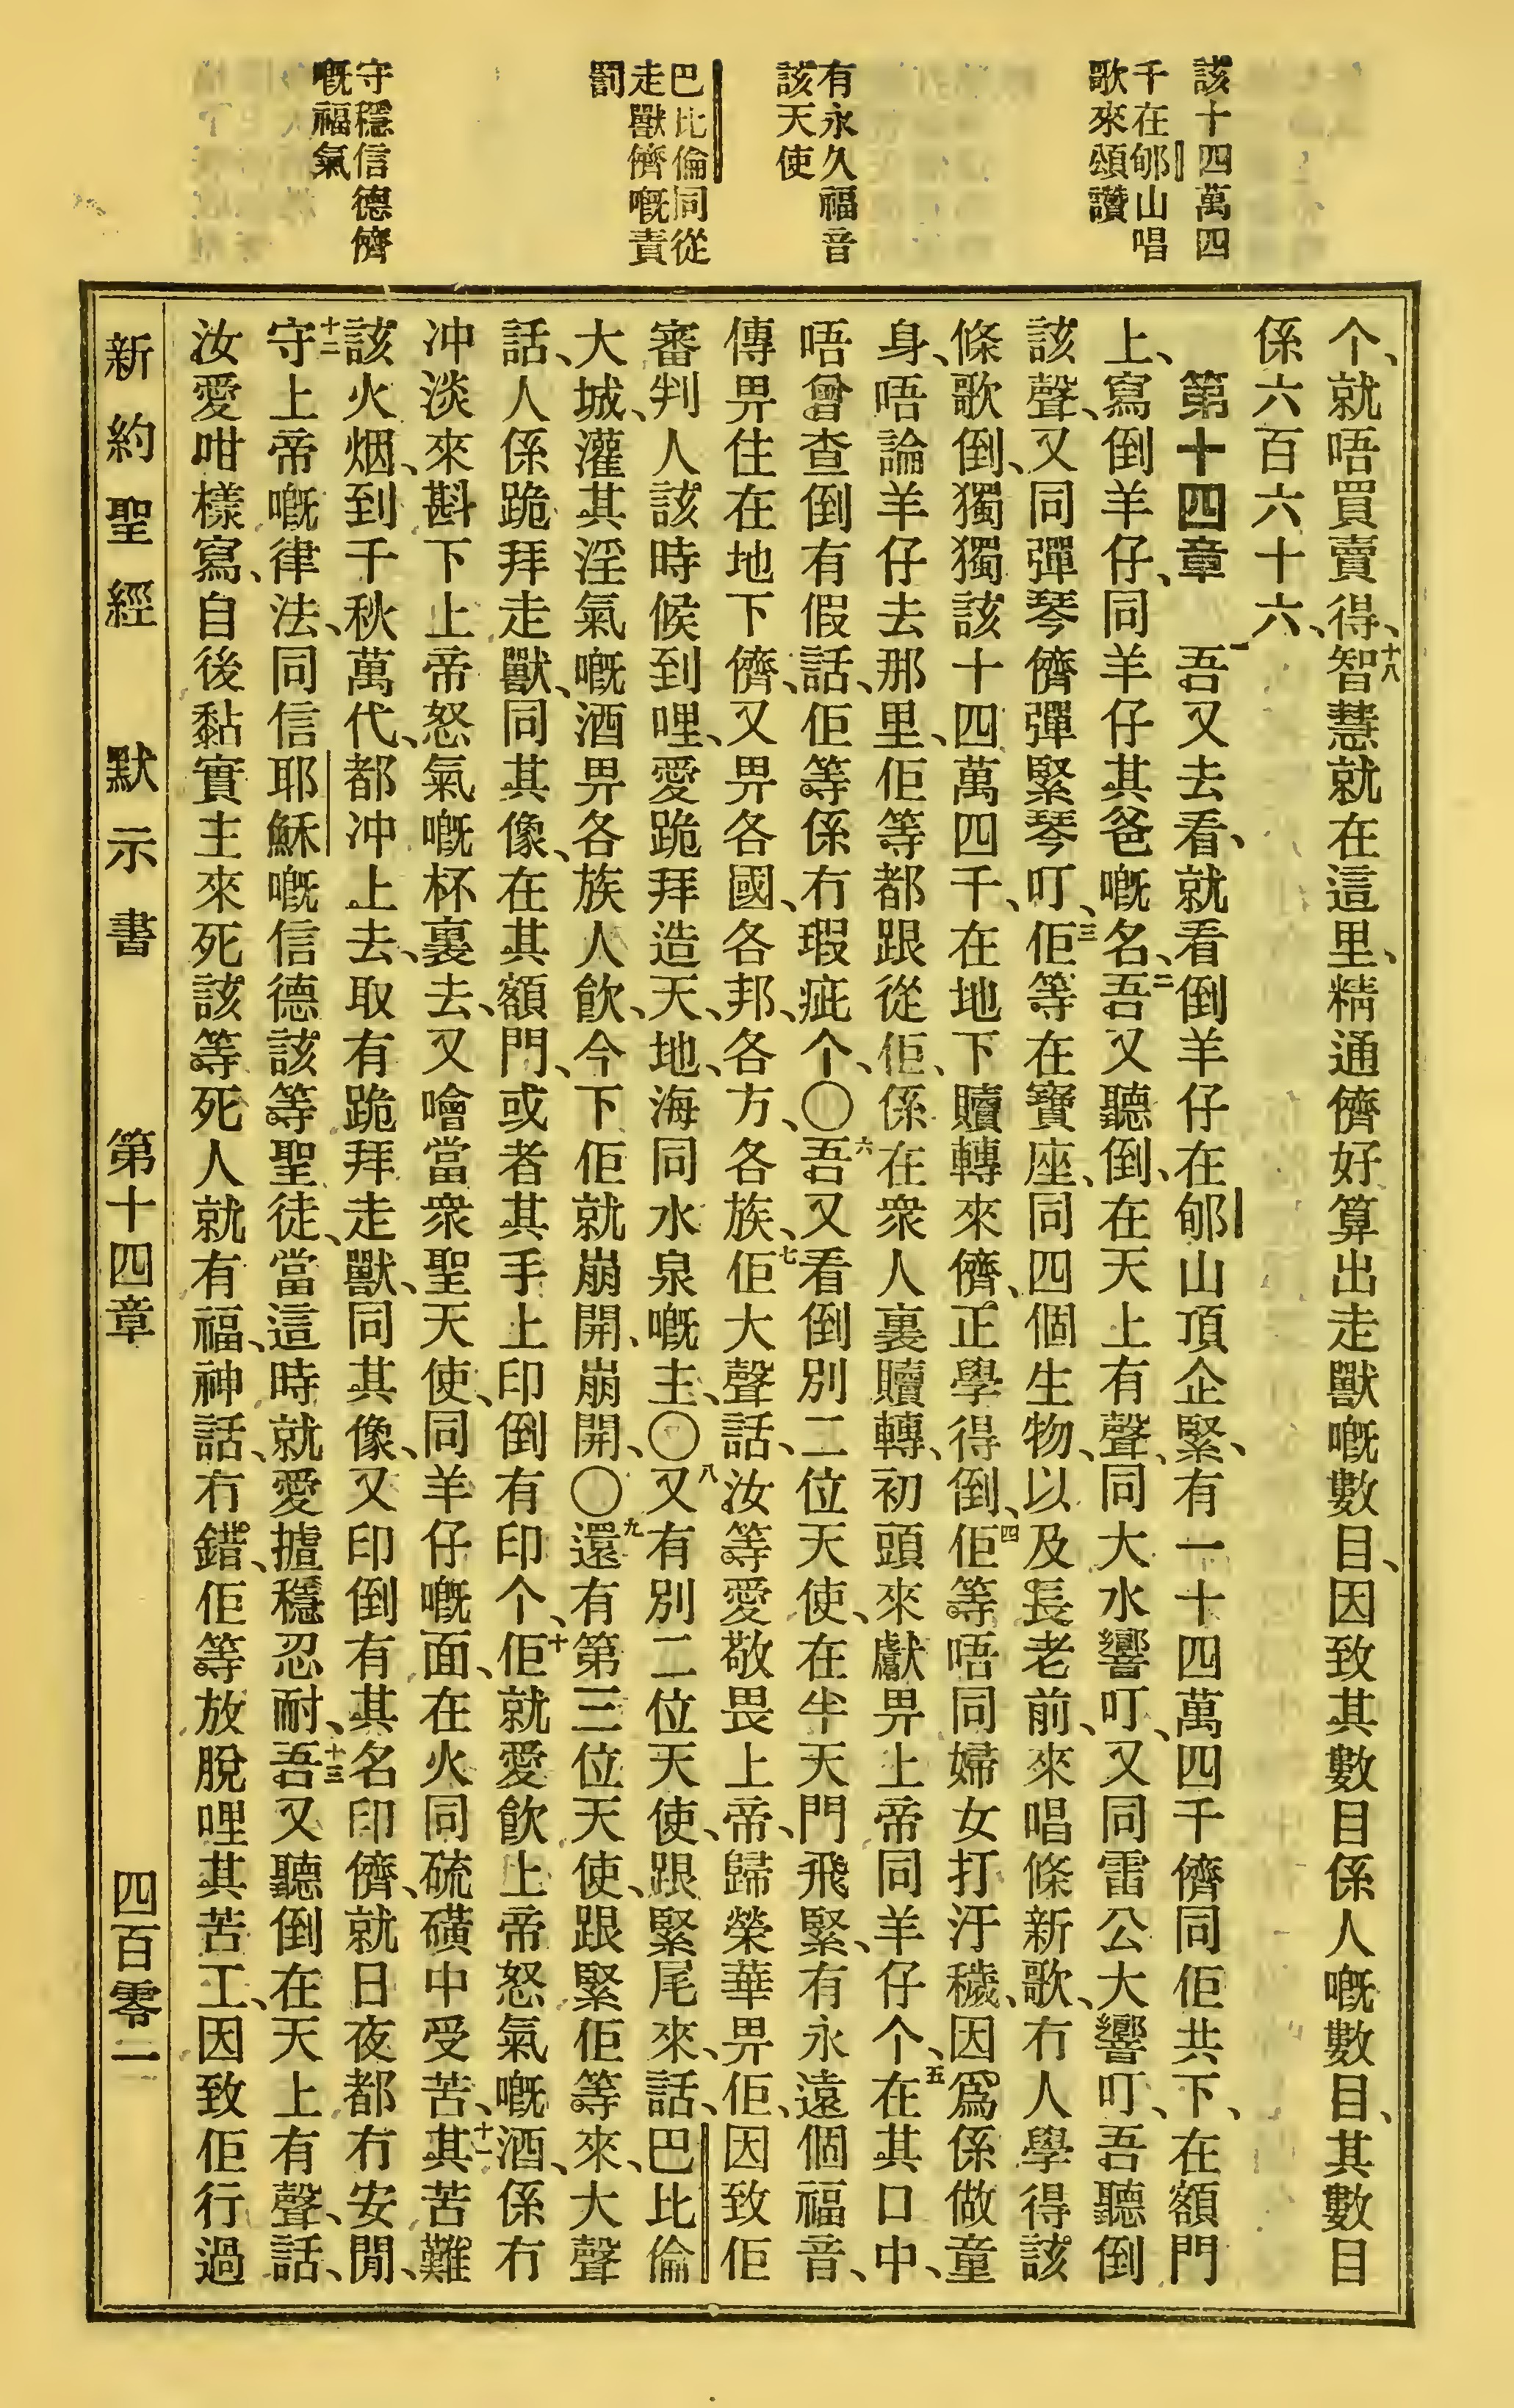 該十四萬四
千在郇山唱
歌來頌讚
有永久福音
該天使
巴比倫同從
走獸儕嘅責
罰
守穩信德儕
嘅福氣
个、就唔買賣得、十八智慧就在這里、精通儕好算出走獸嘅數目、因致其數目係人嘅數目、其數目
係六百六十六、
第十四章 一吾又去看、就看倒羊仔在郇山頂企緊、有一十四萬四千儕同佢共下、在額門
上、寫倒羊仔、同羊仔其爸嘅名、二吾又聽倒、在天上有聲、同大水響叮、又同雷公大響叮、吾聽倒
該聲、又同彈琴儕彈緊琴叮、三佢等在寶座、同四個生物、以及長老前、來唱條新歌、冇人學得該
條歌倒、獨獨該十四萬四千、在地下贖轉來儕、正學得倒、四佢等唔同婦女打汙穢、因爲係做童
身、唔論羊仔去那里、佢等都跟從佢、係在衆人裏贖轉、初頭來獻畀上帝同羊仔个、五在其口中、
唔曾查倒有假話、佢等係冇瑕疵个、〇六吾又看倒別二位天使、在半天門飛緊、有永遠個福音、
傳畀住在地下儕、又畀各國、各邦、各方、各族、七佢大聲話、汝等愛敬畏上帝、歸榮華畀佢、因致佢
審判人該時候到哩、愛跪拜造天、地、海同水泉嘅主、〇八又有別二位天使、跟緊尾來、話、巴比倫
大城、灌其淫氣嘅酒畀各族人飲、今下佢就崩開、崩開、〇九還有第三位天使、跟緊佢等來、大聲
話、人係跪拜走獸、同其像、在其額門、或者其手上印倒有印个、十佢就愛飲上帝怒氣嘅酒、係冇
冲淡來斟下上帝怒氣嘅杯裏去、又噲當衆聖天使、同羊仔嘅面、在火同硫磺中受苦、十一其苦難
該火烟、到千秋萬代、都冲上去、取有跪拜走獸、同其像、又印倒有其名印儕、就日夜都冇安閒、
十二守上帝嘅律法、同信耶穌嘅信德該等聖徒、當這時就愛揸穩忍耐、十三吾又聽倒在天上有聲、話、
汝愛咁樣寫、自後黏實主來死該等死人就有福、神話、冇錯、佢等放脫哩其苦工、因致佢行過
新約聖經 默示書 第十四章 四百零二